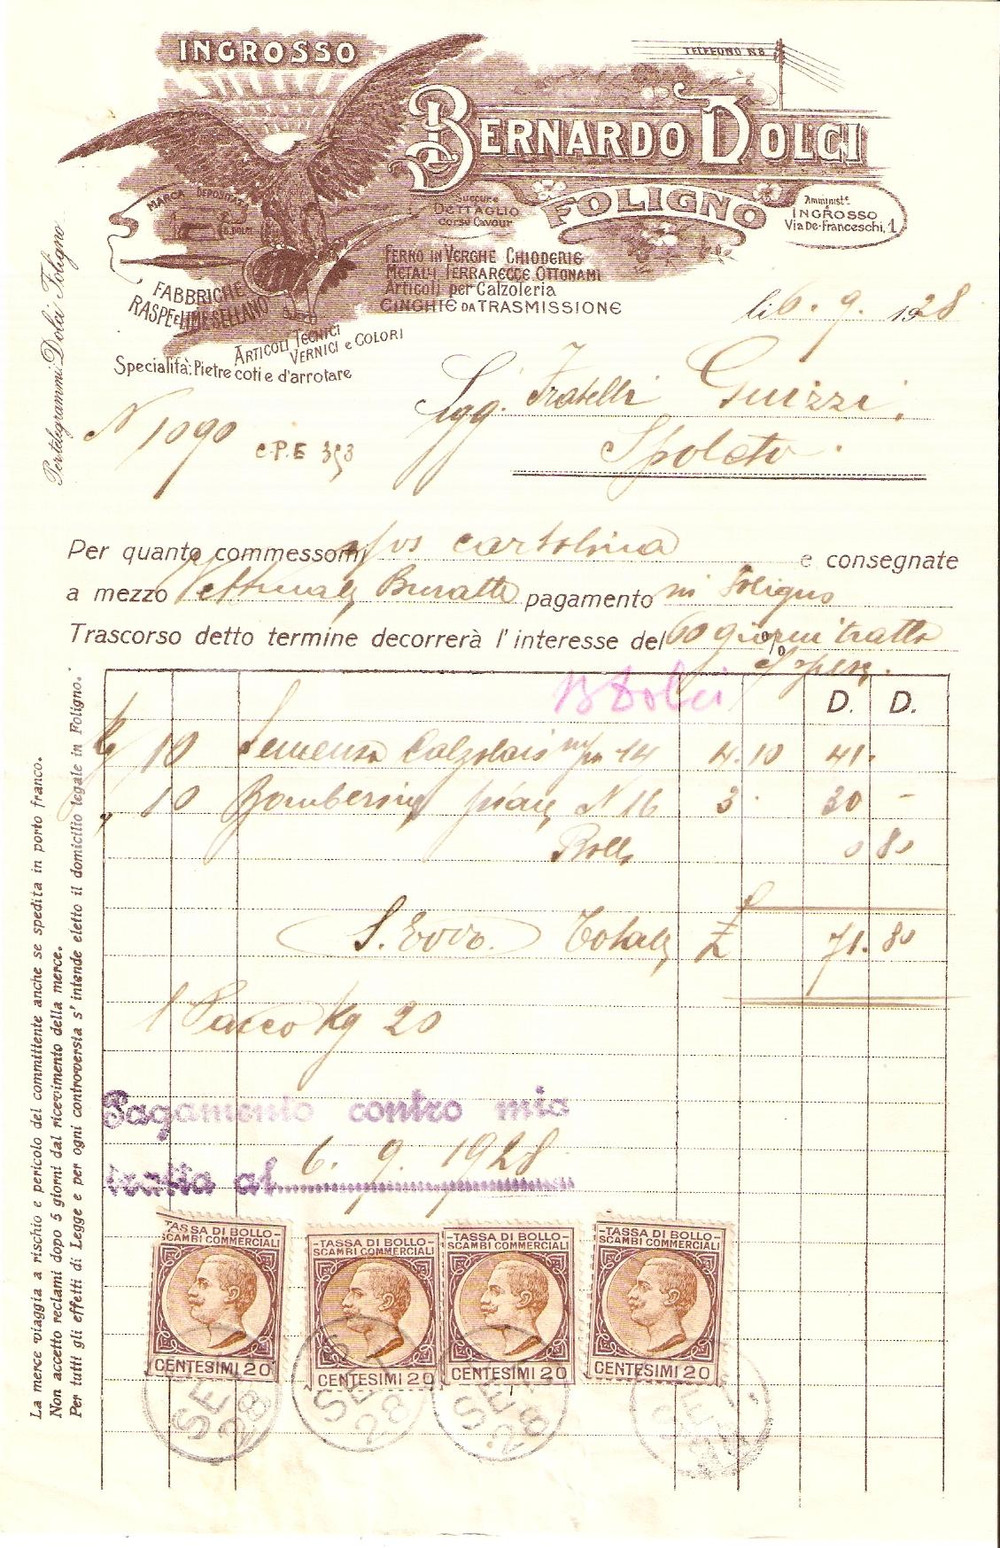 INGROSSO
TELEFONO N.8
BERNARDO DOLCI
FOLIGNO
MARCA DEPOSITATA
B. DOLCI
DETTAGLIO
corso Cavour
Amministe.
INGROSSO
Via De-Franceschi, 1
FERRO IN VERGHE CHIODERIE
METALLI FERRARECCE OTTONAMI
Articoli per Calzoleria
CINGHIE DA TRASMISSIONE
FABBRICHE
RASPE e LIME SELLANO
ARTICOLI TECNICI
VERNICI e COLORI
Specialità: Pietre coti e d'arrotare
Per telegrammi: Dolci Foligno
li 6. 9. 1928
Sigg. Fratelli Guizzi.
Spoleto.
N 1090
C.P.E 353
Per quanto commessomi cartolina e consegnate
a mezzo pagamento in Foligno
Trascorso detto termine decorrerà l'interesse del % 60 giorni tratta
s/spese.
B Dolci
D. D.
Kg 10 Semenza Calzolai m/m 14 4.10 41.-
" 10 N 16 3. 30 -
Bollo 0 80
S. E. O. Totale £ 71.80
1 Pacco Kg 20
Pagamento contro mia
tratta al 6. 9. 1928
La merce viaggia a rischio e pericolo del committente anche se spedita in porto franco.
Non accetto reclami dopo 5 giorni dal ricevimento della merce.
Per tutti gli effetti di Legge e per ogni controversia s'intende eletto il domicilio legale in Foligno.
-TASSA DI BOLLO-
SCAMBI COMMERCIALI
CENTESIMI 20
-TASSA DI BOLLO-
SCAMBI COMMERCIALI
CENTESIMI 20
-TASSA DI BOLLO-
SCAMBI COMMERCIALI
CENTESIMI 20
-TASSA DI BOLLO-
SCAMBI COMMERCIALI
CENTESIMI 20
SET
28
SET
28
SET
28
SET
28